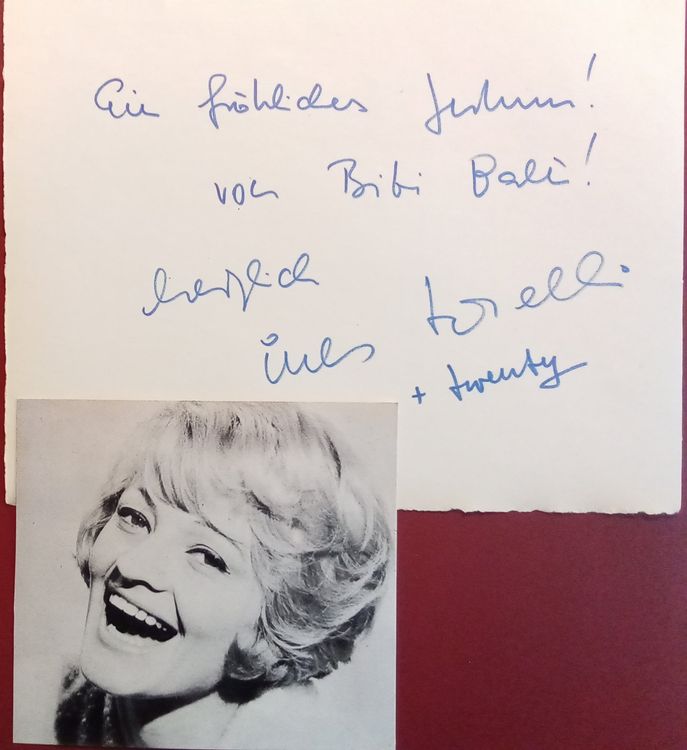 Ein fröhliches
von Bibi Balù!
herzlich
ines torelli
+ twenty